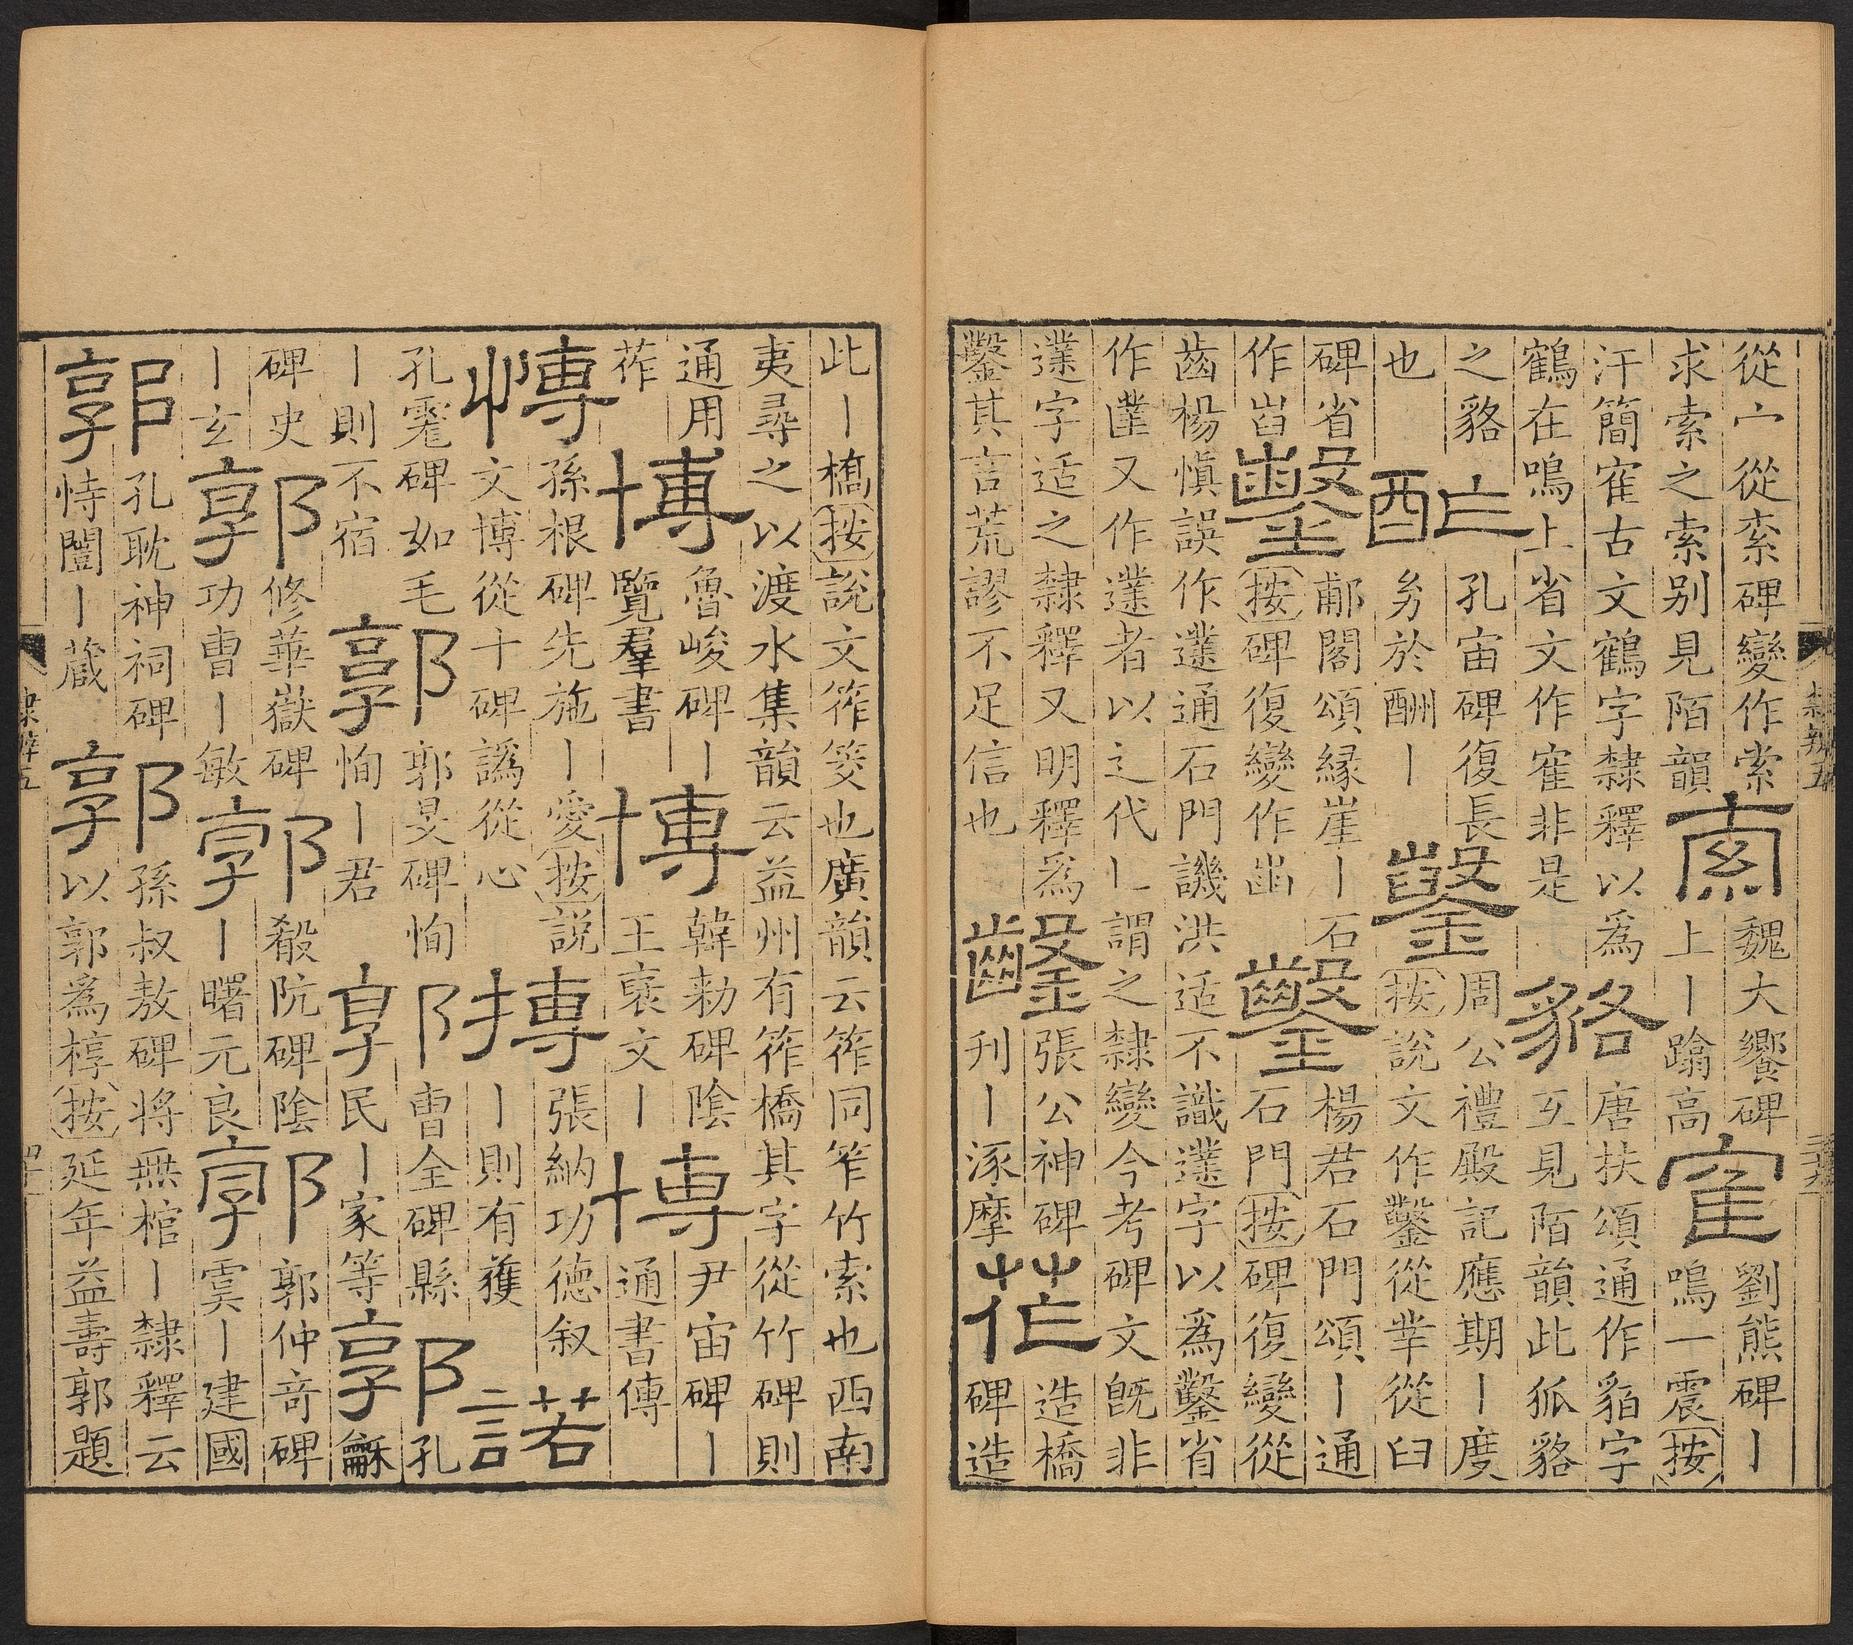 從宀從索碑變作索
求索之索别見陌韻
索
魏大饗碑
上丨蹹高
寉
劉熊碑丨
鳴一震按
汗簡寉古文鶴字隸釋以爲
鶴在鳴上省文作寉非是
貉
唐扶頌通作貊字
互見陌韻此狐貉
之貉
也
酢
孔宙碑復長
於酬丨
鑿
周公禮殿記應期丨度
按說文作鑿從丵從臼
碑省
作
鑿
郙閣頌緣崖丨石
按碑復變作
鑿
楊君石門頌丨通
石門按碑復變從
齒楊愼誤作䢫通石門譏洪适不識䢫字以爲鑿省
作又作䢫者以辶代乚謂之隸變今考碑文旣非
䢫字适之隸釋又明釋爲
鑿其言荒謬不足信也
鑿
張公神碑
刋丨涿摩
莋
造橋
碑造
此丨橋按說文筰筊也廣韻云筰同笮竹索也西南
夷尋之以渡水集韻云益州有筰橋其字從竹碑則
通用
莋
博
魯峻碑丨
覽羣書
博
韓勑碑陰
王襄文丨
博
尹宙碑丨
通書傳
愽
孫根碑先施丨愛按説
文博從十碑譌從心
搏
張納功德叙
丨則有獲
諾
孔耄碑如毛
丨則不宿
郭
郭旻碑恂
恂丨君
郭
曹全碑縣
民丨家等
郭
孔
龢
碑史
丨玄
郭
修華嶽碑
功曹丨敏
郭
殽阮碑陰
丨曙元良
郭
郭仲奇碑
虞丨建國
郭
孔耽神祠碑
恃闇丨蔵
郭
孫叔敖碑將無棺丨隸釋云
以郭爲椁按延年益壽郭題